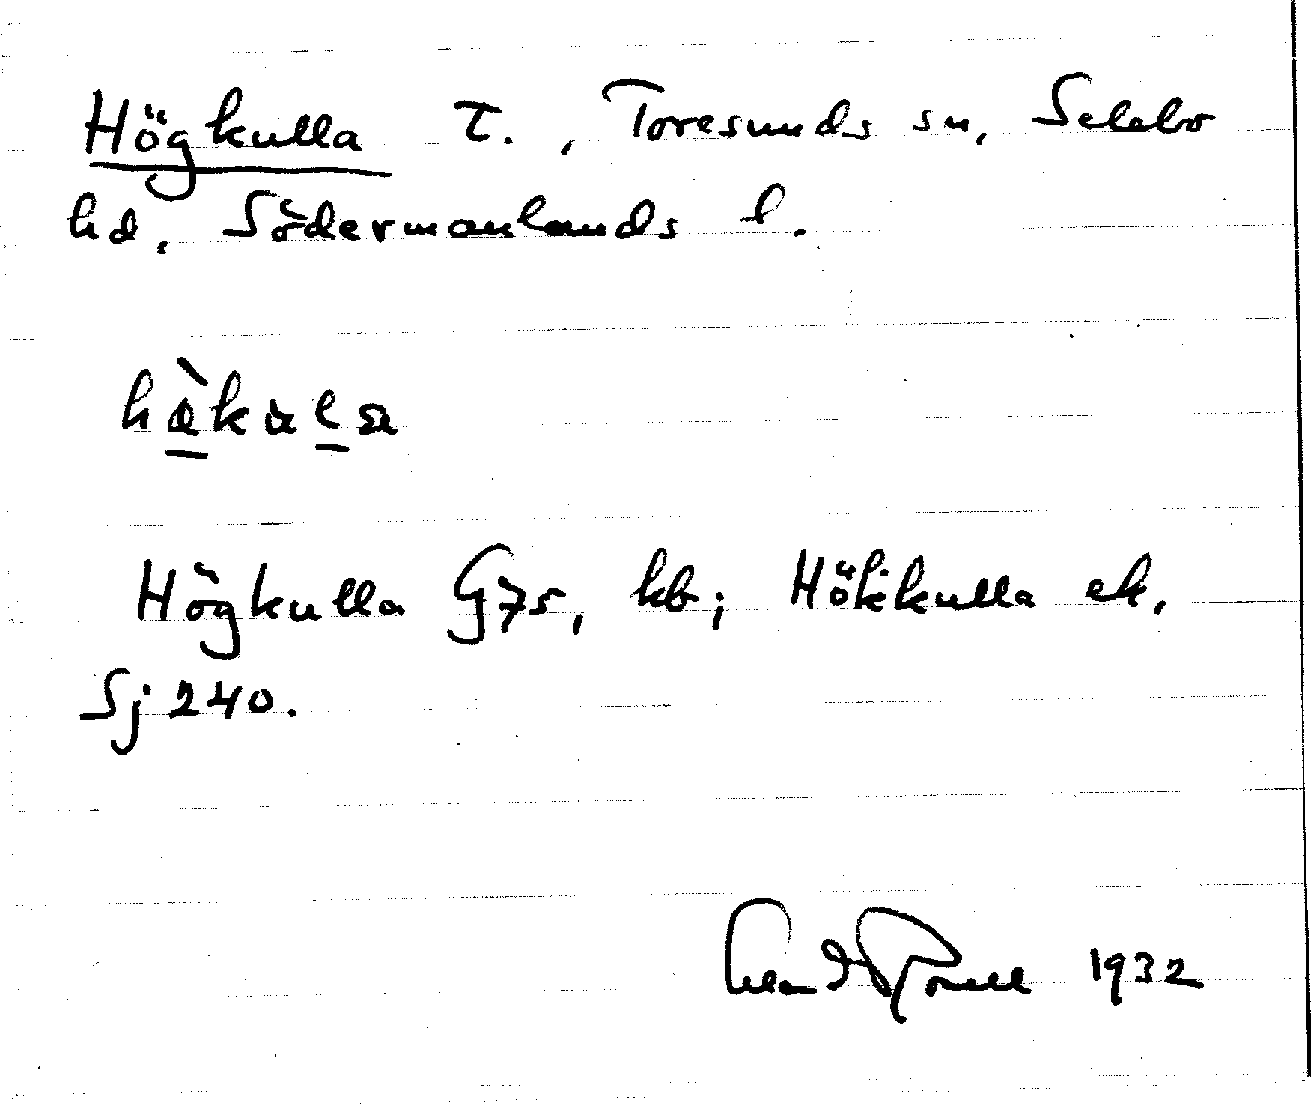 Högkulla T., Toresunds sn, Selebo
hd, Södermanlands l.
Högkulla G75, kb; Hökkulla ek,
Sj 240.
1932